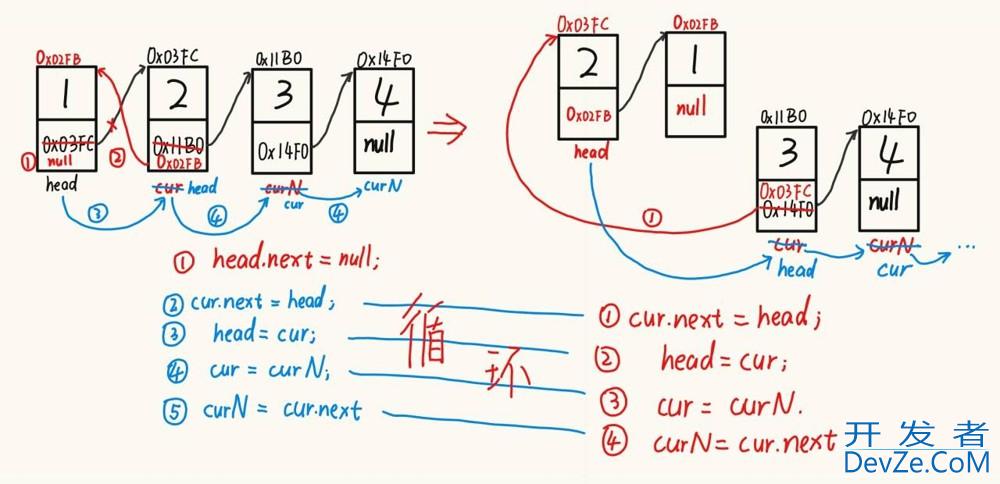 0x02FB 0x03FC 0x11B0 0x14F0
1 2 3 4
0x03FC 0x11B0 0x14F0 null
① null ② 0x02FB
head cur head curN curN
cur
③ ④ ④
① head.next = null;
② cur.next = head;
③ head = cur;
④ cur = curN;
⑤ curN = cur.next
循
环
0x03FC 0x02FB
2 1
0x02FB null
head
0x11B0 0x14F0
3 4
0x03FC
0x14F0 null
①
cur curN ...
head cur
① cur.next = head;
② head = cur;
③ cur = curN.
④ curN = cur.next
开发者
DevZe.CoM